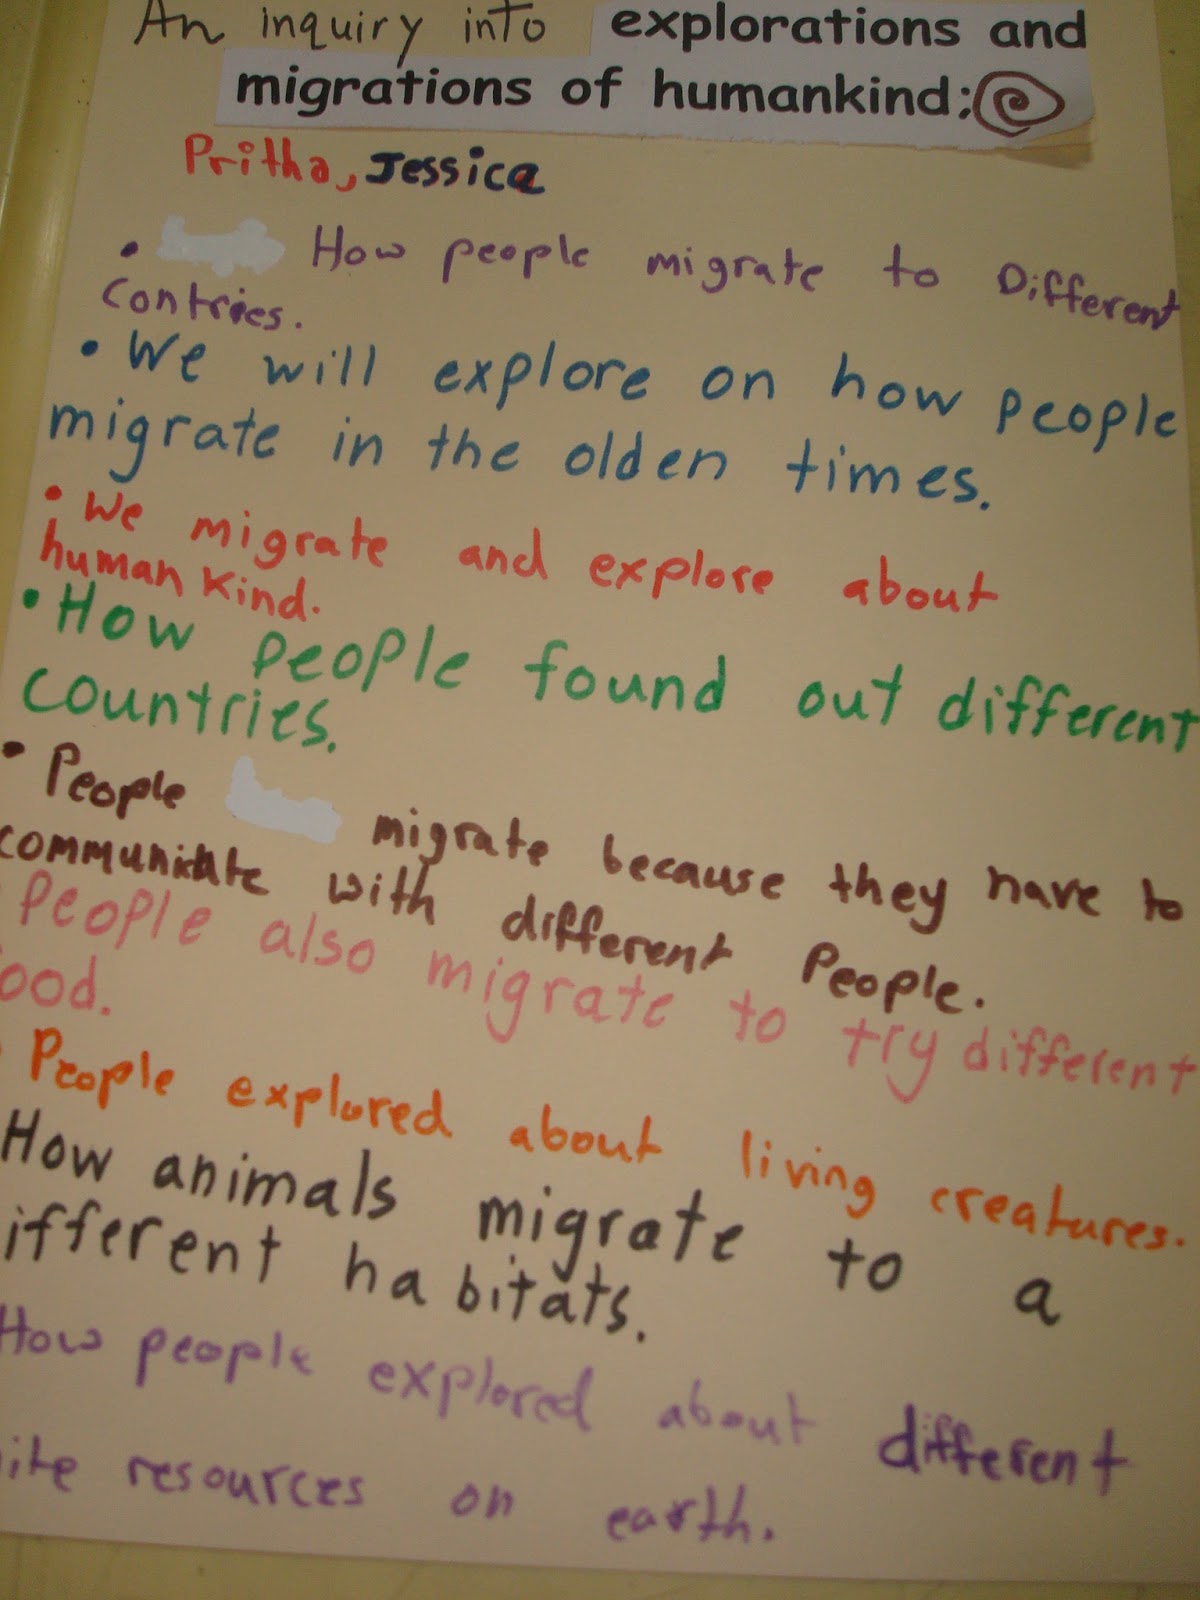 An inquiry into explorations and
migrations of humankind:
Pritha, Jessica
• How people migrate to Different
Contries.
• We will explore on how people
migrate in the olden times.
• We migrate and explore about
human kind.
• How people found out different
countries.
• People migrate because they have to
communicate with different People.
People also migrate to try different
ood.
People explored about living creatures.
How animals migrate to a
ifferent habitats.
How people explored about different
ite resources on earth.